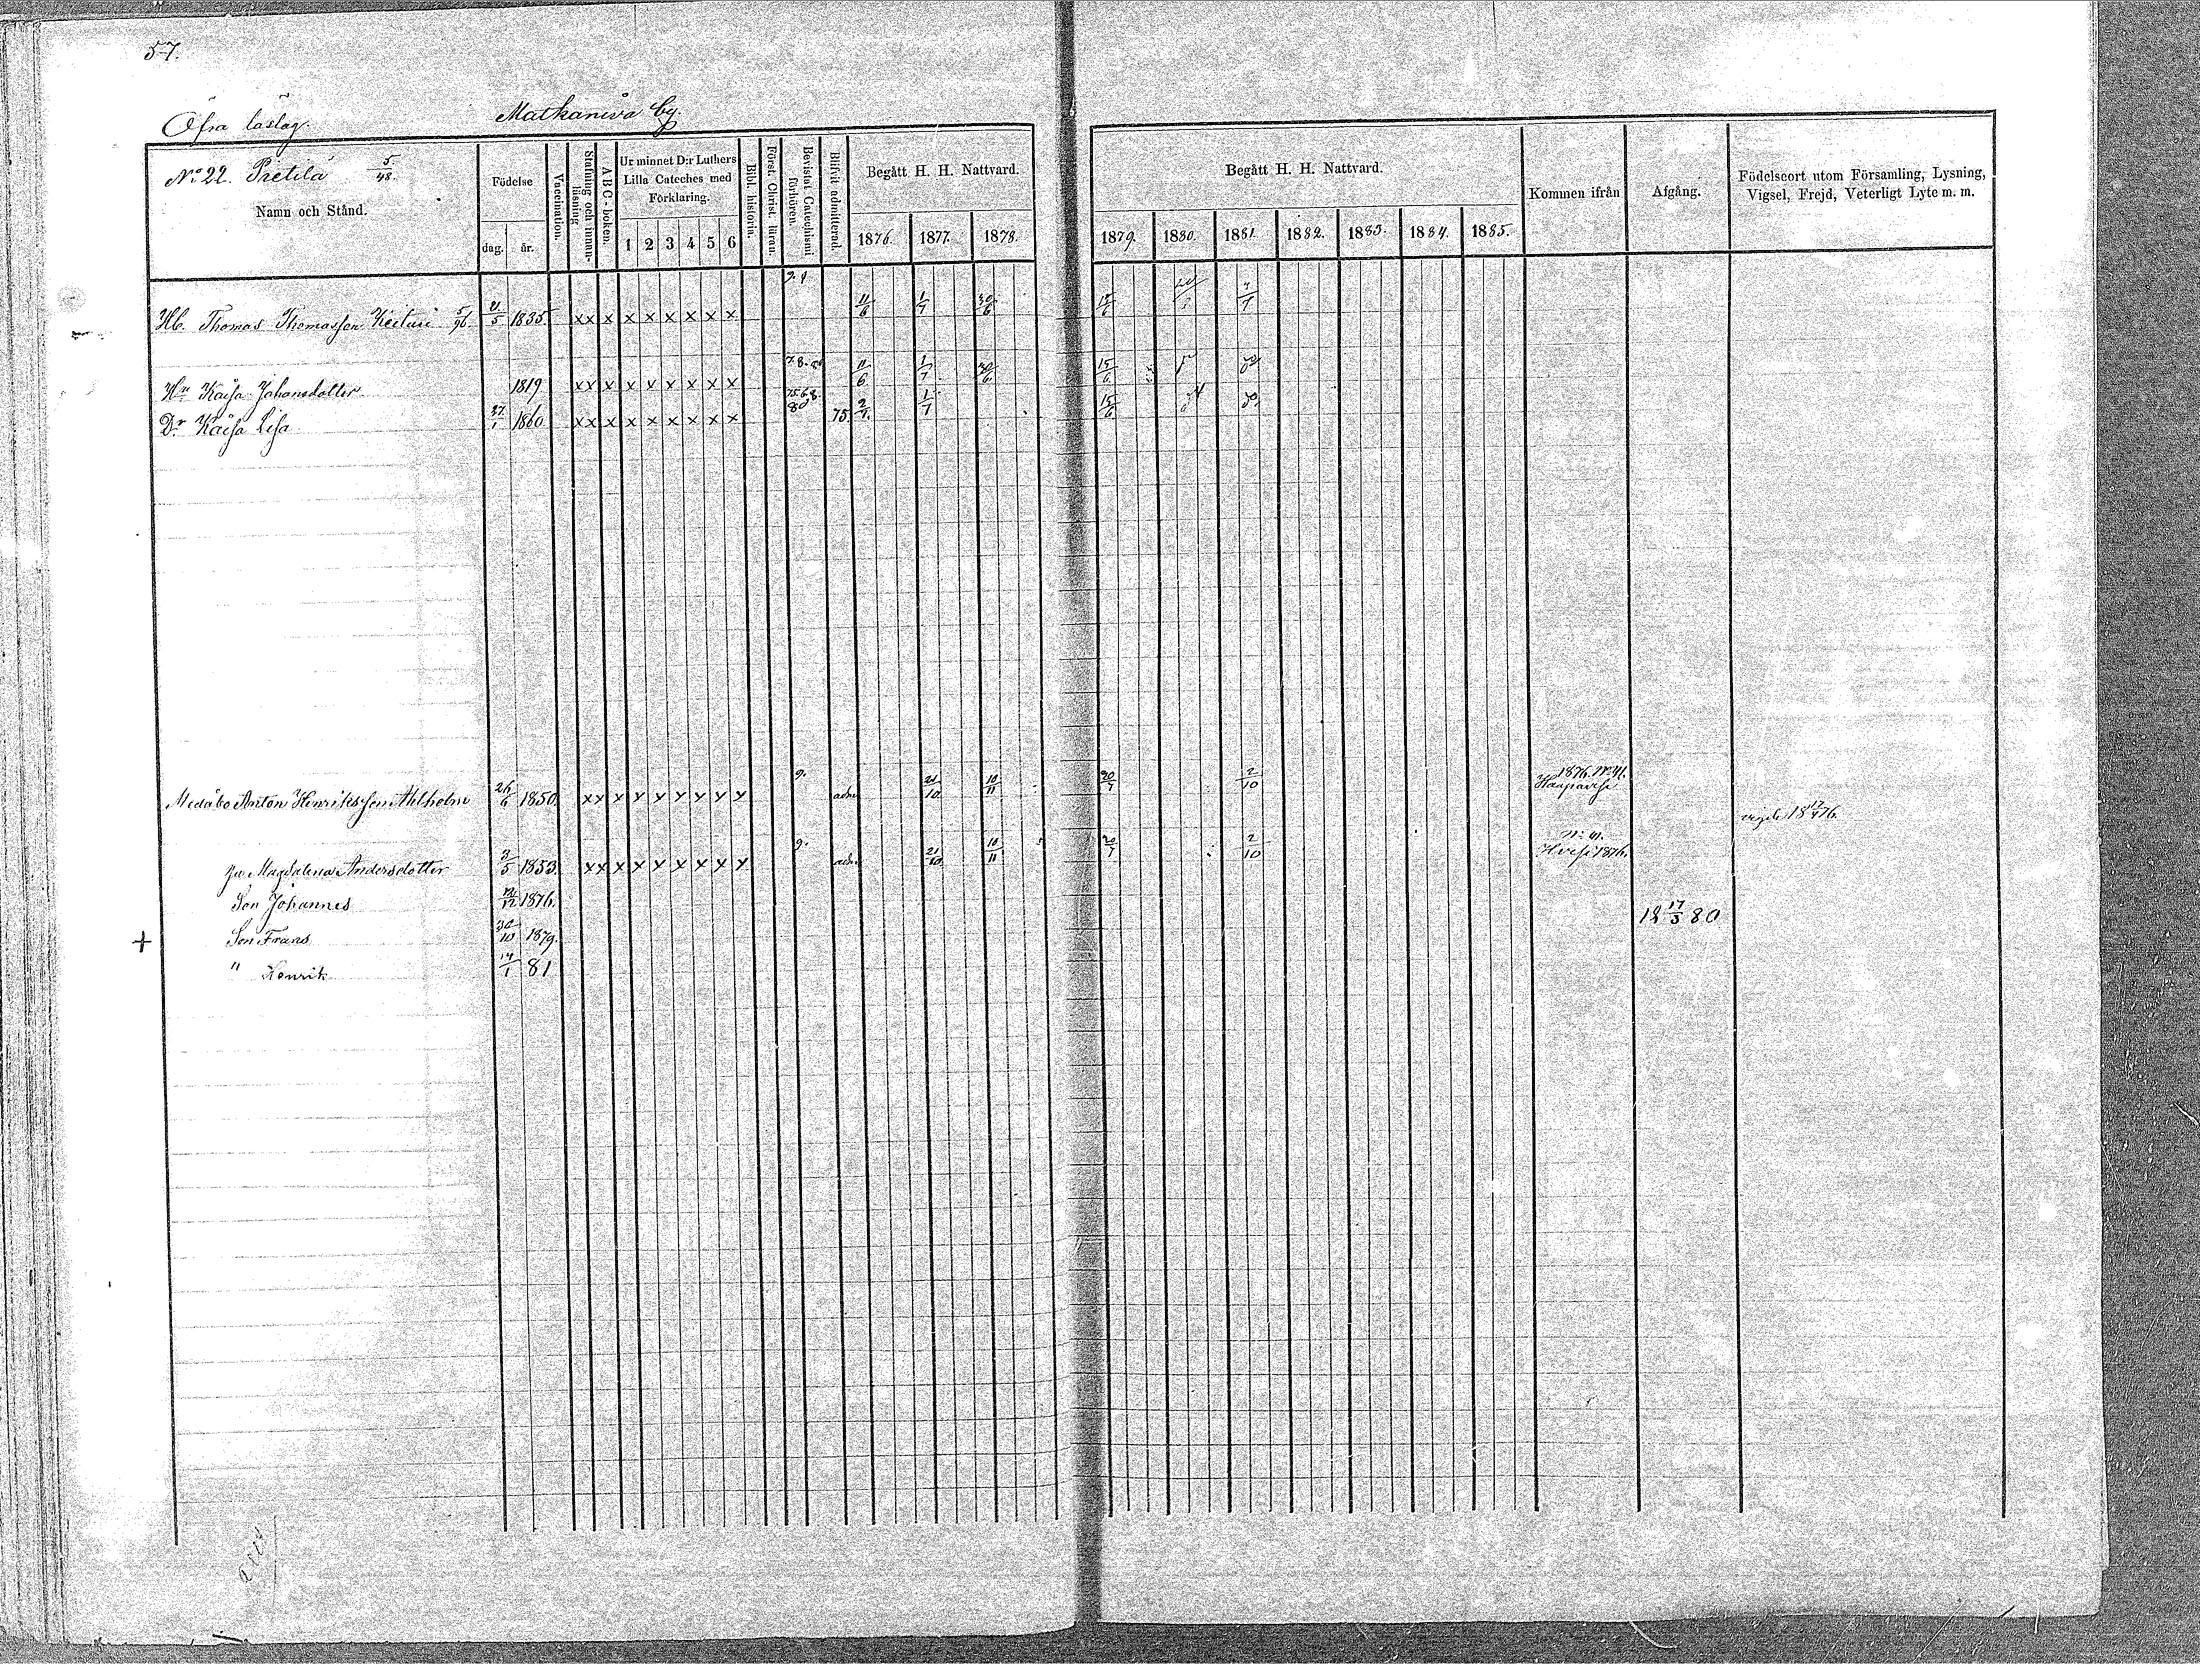 57.
Öfra låslag. Matkaniva by.
No 22. Pretila 5/48.
Namn och Stånd.
Födelse
dag. år.
Vaccination.
Stafning och innan-
läsning
A B C - boken.
Ur minnet D:r Luthers
Lilla Cateches med
Förklaring.
1 2 3 4 5 6
Bibl. historia.
Först. Christ. läran.
Bevistat Catechismi
förhören.
Blifvit admitterad.
Begått H. H. Nattvard.
1876. 1877. 1878.
Begått H. H. Nattvard.
1879. 1880. 1881. 1882. 1883. 1884. 1885.
Kommen ifrån
Afgång.
Födelseort utom Församling, Lysning,
Vigsel, Frejd, Veterligt Lyte m. m.
Hb. Thomas Thomasson 5/96 21/5 1835 x x x x x x x x x 11/6 1/7 30/6 15/6
Hu Kaisa Johansdotter 1819 x x x x x x x x x 7. 8. 11/6 1/7 30/6 15/6
Dr Kaisa Lisa 27/1 1860 x x x x x x x x x 80 75. 2/7. 1/7 15/6
Anton Henriksson Ahlholm 26/6 1850 x x x x x x x x x 9. adm. 21/10 10/11 20/7 2/10 1876. No 41. Haapavesi
vigde 18 17/4 76.
hu. Magdalena Andersdotter 3/5 1853. x x x x x x x x x 9. adm. 21/10 10/11 20/7 2/10 No 41. H:vesi 1876.
Son Johannes 12/12 1876.
+ Son Frans 30/10 1879. 18 17/3 80
" Henrik 14/1 81